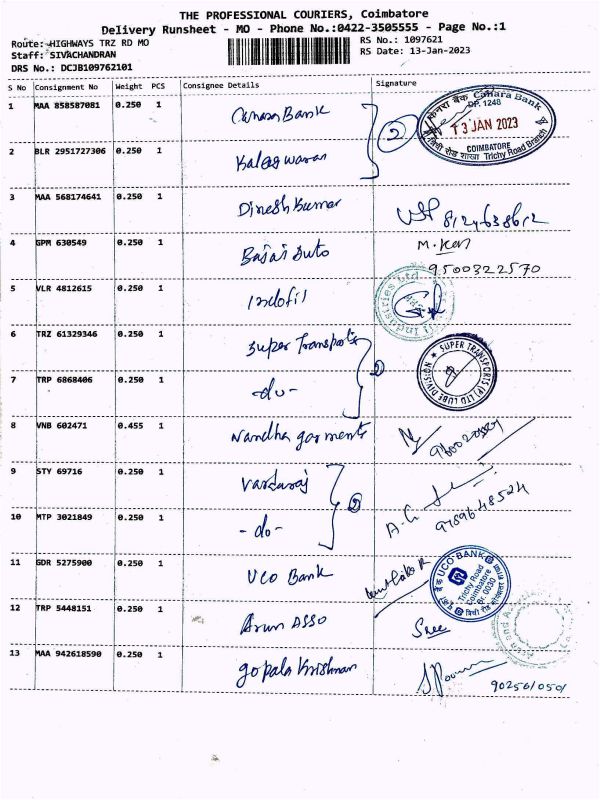 THE PROFESSIONAL COURIERS, Coimbatore
Delivery Runsheet - MO - Phone No.:0422-3505555 - Page No.:1
Route: HIGHWAYS TRZ RD MO RS No.: 1097621
Staff: SIVACHANDRAN RS Date: 13-Jan-2023
DRS No.: DCJB109762101
S No Consignment No Weight PCS Consignee Details Signature
1 MAA 858587081 0.250 1 Canara Bank 2
केनरा बैंक Canara Bank
DP. 1248
13 JAN 2023
COIMBATORE
Trichy Road Branch
2 BLR 2951727306 0.250 1
3 MAA 568174641 0.250 1 Dinesh Kumar
4 GPM 630549 0.250 1 Bajaj Auto
9500322570
5 VLR 4812615 0.250 1 Indofil
6 TRZ 61329346 0.250 1 Super Transports 2
SUPER TRANSPORTS (P) LTD LUBE DIVISION
7 TRP 6868406 0.250 1 -do-
8 VNB 602471 0.455 1 Nandha garments
9 STY 69716 0.250 1 Vardaraj 2
10 MTP 3021849 0.250 1 -do-
9789648524
11 GDR 5275900 0.250 1 UCO Bank
UCO BANK
Trichy Road
Coimbatore
Br 0030
12 TRP 5448151 0.250 1 Arun ASSO Sree
13 MAA 942618590 0.250 1 gopala Krishnan
9025610501